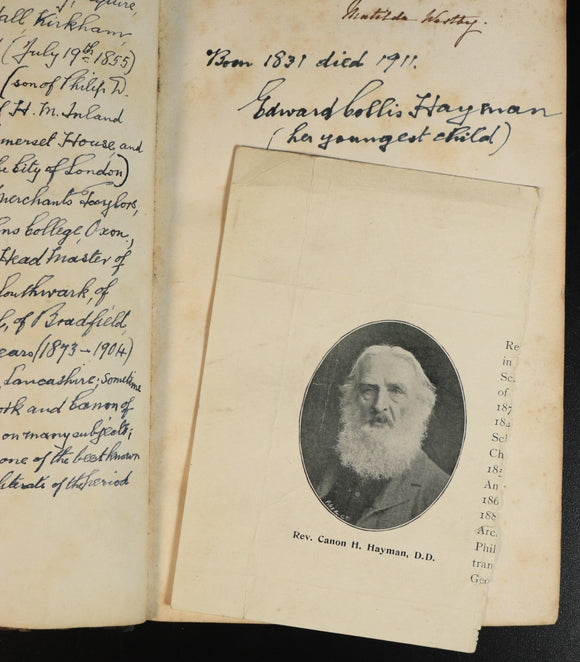 squire,
Hall Kirkham,
(July 19th 1855)
(son of Philip D.
of H. M. Inland
Somerset House and
the City of London)
Merchants Taylors,
College, Oxon,
Head Master of
Southwark, of
of Bradfield,
years (1873-1904)
Lancashire; sometime
and Canon of
on many subjects;
one of the best known
literati of the period
Matilda
Born 1831 died 1911.
Edward Collis Hayman
(her youngest child)
Re
in
Sc.
of
187
184
Sch
Ch
185
An
186
188
Arc.
Phil
tran
Geo
Rev. Canon H. Hayman, D.D.